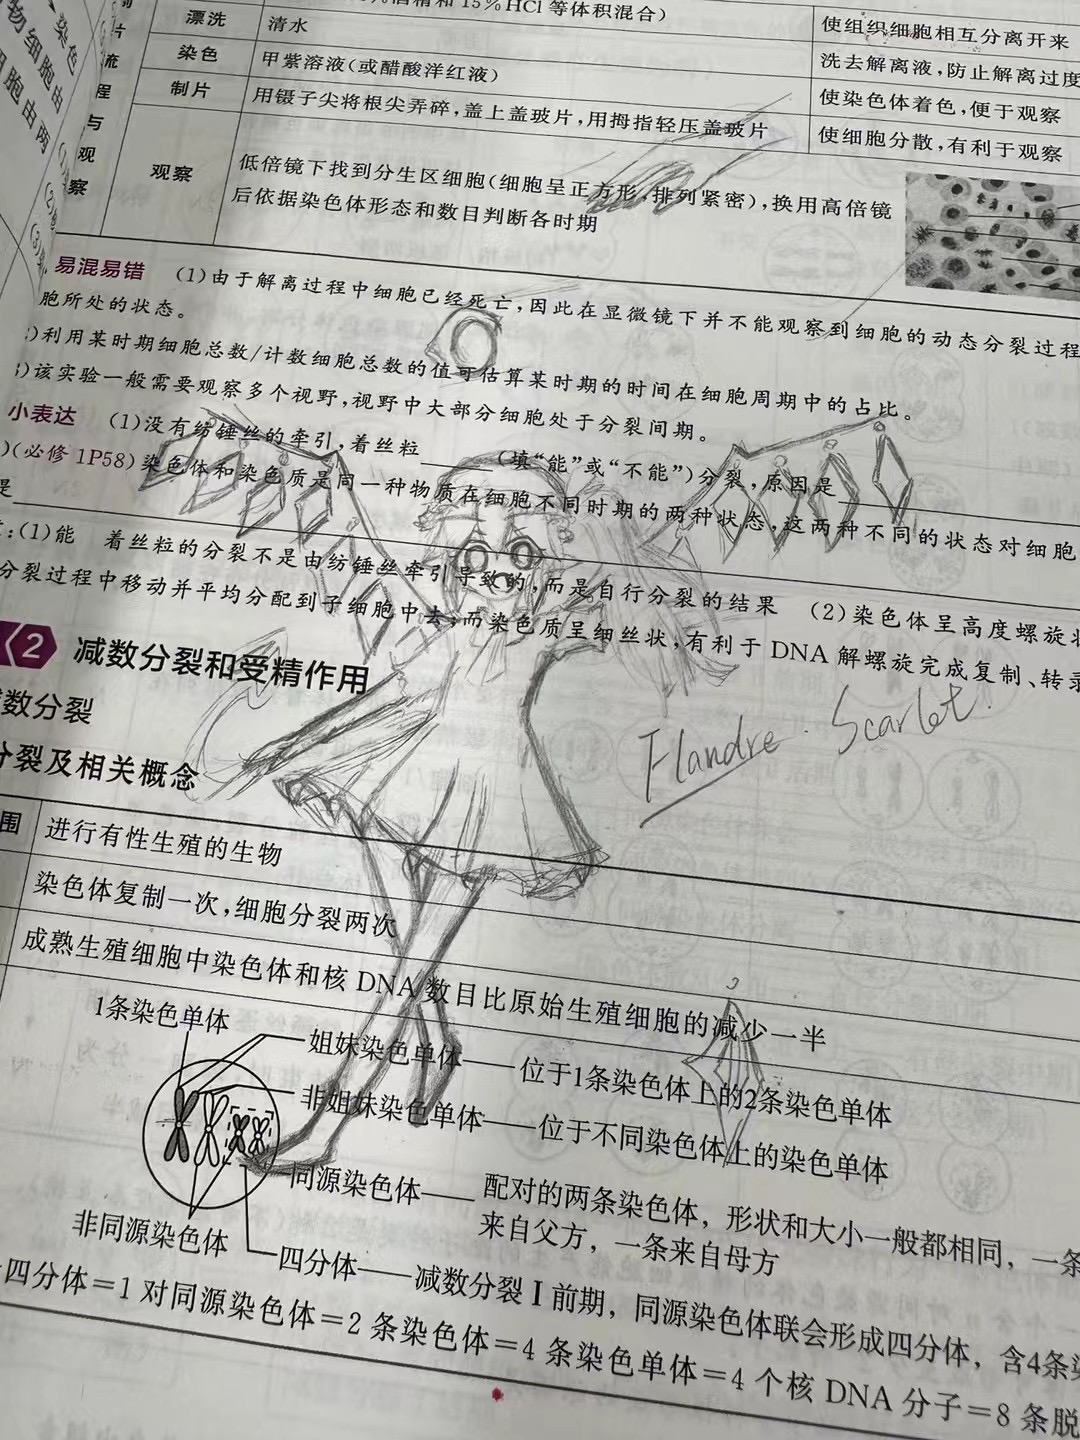 染色
物细胞由
细胞由两
片
流
程
与
观
察
酒精和15%HCl等体积混合)
使组织细胞相互分离开来
漂洗 清水 洗去解离液,防止解离过度
染色 甲紫溶液(或醋酸洋红液) 使染色体着色,便于观察
制片 用镊子尖将根尖弄碎,盖上盖玻片,用拇指轻压盖玻片 使细胞分散,有利于观察
观察 低倍镜下找到分生区细胞(细胞呈正方形,排列紧密),换用高倍镜
后依据染色体形态和数目判断各时期
易混易错 (1)由于解离过程中细胞已经死亡,因此在显微镜下并不能观察到细胞的动态分裂过程
胞所处的状态。
)利用某时期细胞总数/计数细胞总数的值可估算某时期的时间在细胞周期中的占比。
)该实验一般需要观察多个视野,视野中大部分细胞处于分裂间期。
小表达 (1)没有纺锤丝的牵引,着丝粒______(填“能”或“不能”)分裂,原因是
)(必修1P58)染色体和染色质是同一种物质在细胞不同时期的两种状态,这两种不同的状态对细胞
是
:(1)能 着丝粒的分裂不是由纺锤丝牵引导致的,而是自行分裂的结果 (2)染色体呈高度螺旋状
分裂过程中移动并平均分配到子细胞中去;而染色质呈细丝状,有利于DNA解螺旋完成复制、转录
2 减数分裂和受精作用
Flandre · Scarlet.
数分裂
分裂及相关概念
围 进行有性生殖的生物
染色体复制一次,细胞分裂两次
成熟生殖细胞中染色体和核DNA数目比原始生殖细胞的减少一半
1条染色单体
姐妹染色单体——位于1条染色体上的2条染色单体
非姐妹染色单体——位于不同染色体上的染色单体
同源染色体——配对的两条染色体，形状和大小一般都相同，一条
来自父方，一条来自母方
非同源染色体
四分体——减数分裂Ⅰ前期，同源染色体联会形成四分体，含4条染
四分体=1对同源染色体=2条染色体=4条染色单体=4个核DNA分子=8条脱